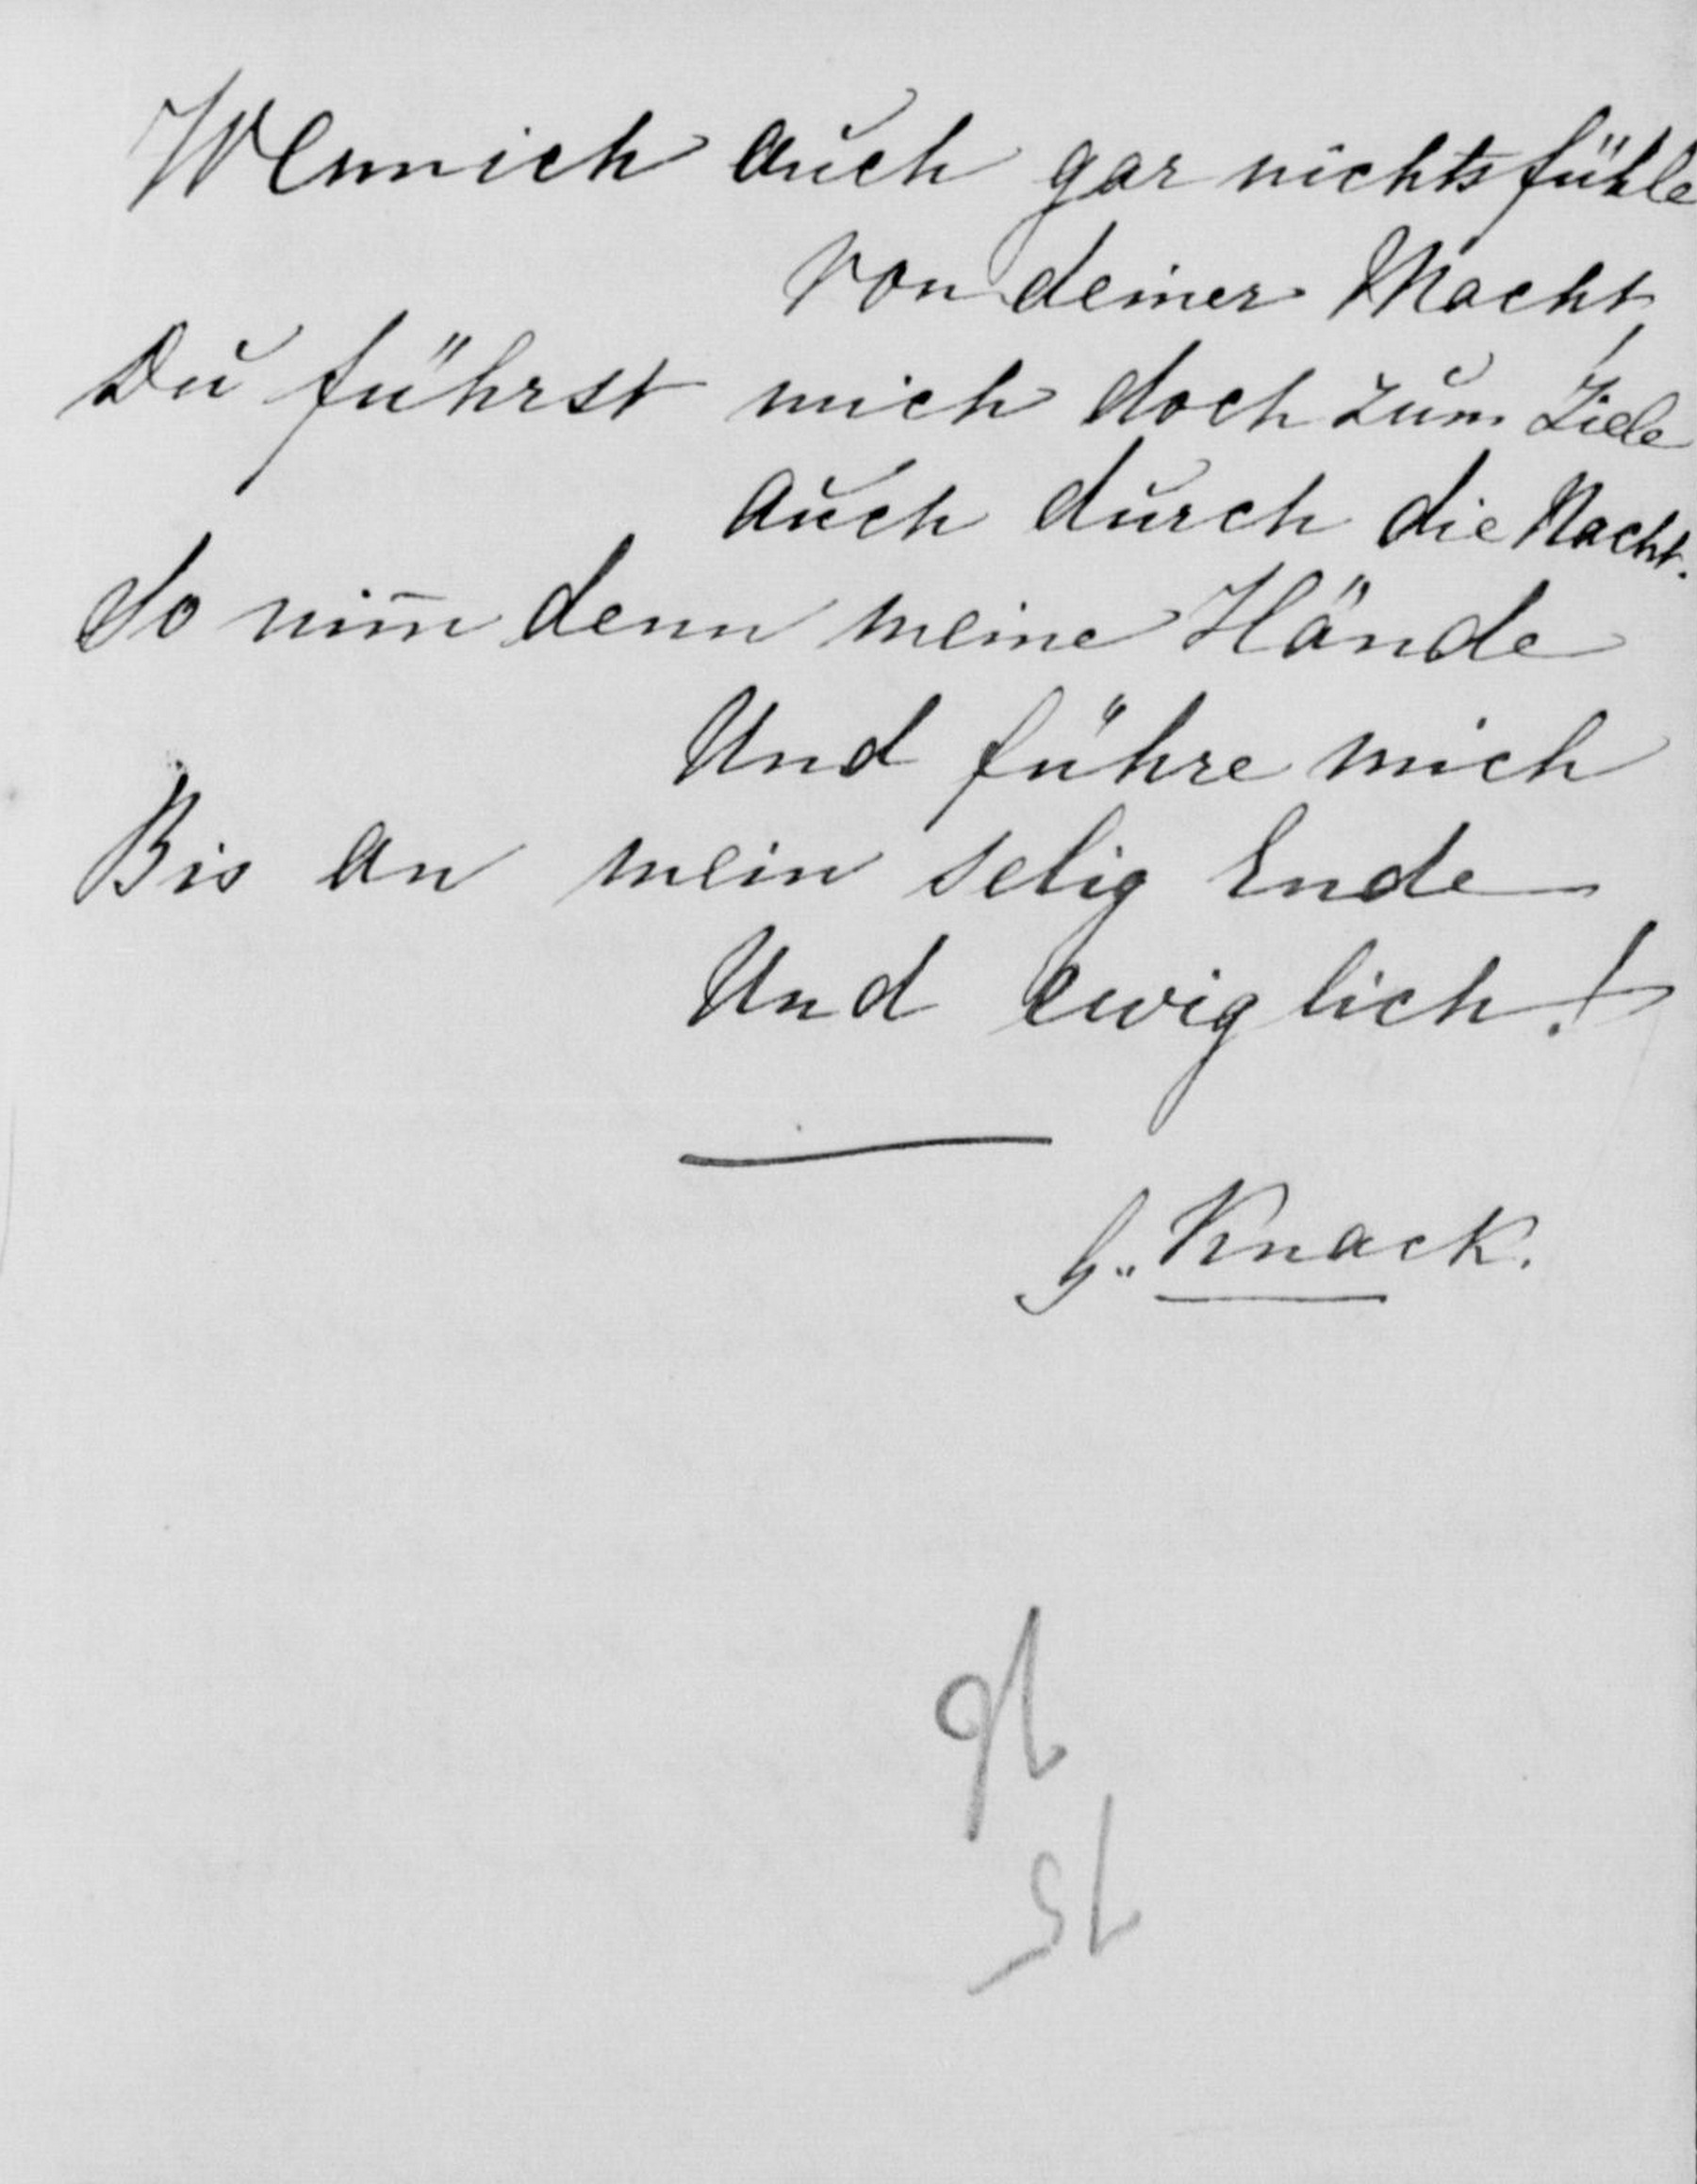 Wennich auch gar nichts fühle
von deiner Macht,
Du führst mich doch zum Ziele
auch durch die Nacht.
So nim̄ denn meine Hände
Und führe mich
Bis an mein selig Ende
Und ewiglich!
G. Knack.